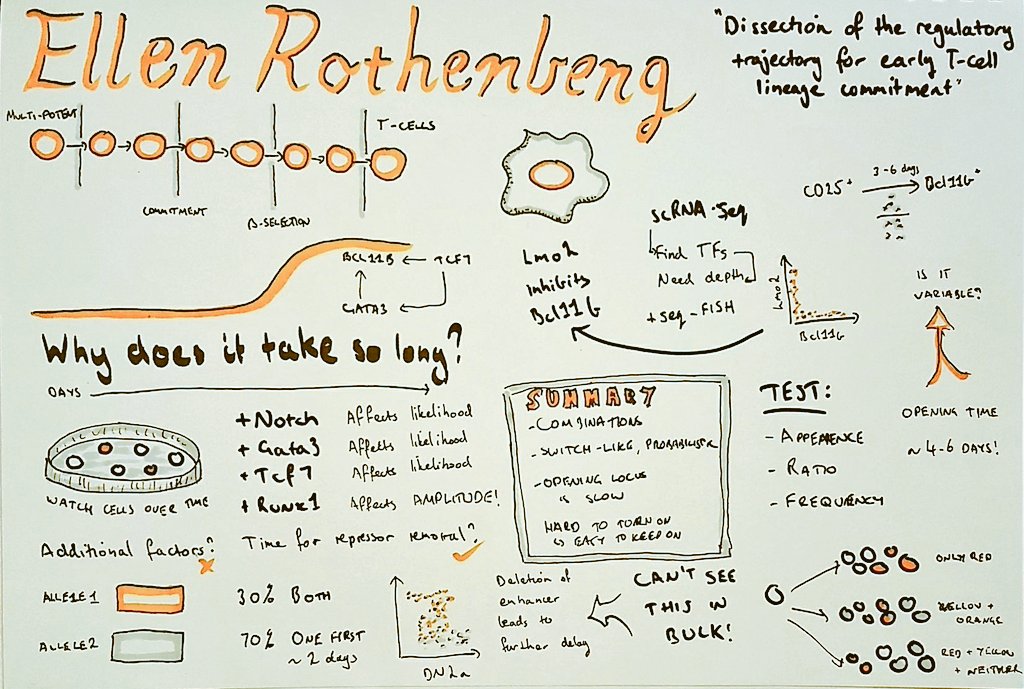 Ellen Rothenberg
"Dissection of the regulatory
trajectory for early T-cell
lineage commitment"
MULTI-POTENT
T-CELLS
COMMITMENT
β-SELECTION
BCL11B ← TCF7
GATA3
Lmo2
inhibits
Bcl11b
scRNA-seq
Find TFs
Need depth
+ seq-FISH
Lmo2
Bcl11b
CD25+
3-6 days
Bcl11b+
IS IT
VARIABLE?
OPENING TIME
~ 4-6 DAYS!
Why does it take so long?
DAYS
WATCH CELLS OVER TIME
+ Notch Affects likelihood
+ Gata3 Affects likelihood
+ Tcf7 Affects likelihood
+ Runx1 Affects AMPLITUDE!
Additional factors?
Time for repressor removal?
ALLELE 1
30% BOTH
ALLELE 2
70% ONE FIRST
~ 2 days
DN2a
Deletion of
enhancer
leads to
further delay
CAN'T SEE
THIS IN
BULK!
SUMMARY
- COMBINATIONS
- SWITCH-LIKE,
- OPENING LOCUS
IS SLOW
HARD TO TURN ON
EASY TO KEEP ON
TEST:
- APPEARENCE
- RATIO
- FREQUENCY
ONLY RED
YELLOW +
ORANGE
RED + YELLOW
+ NEITHER